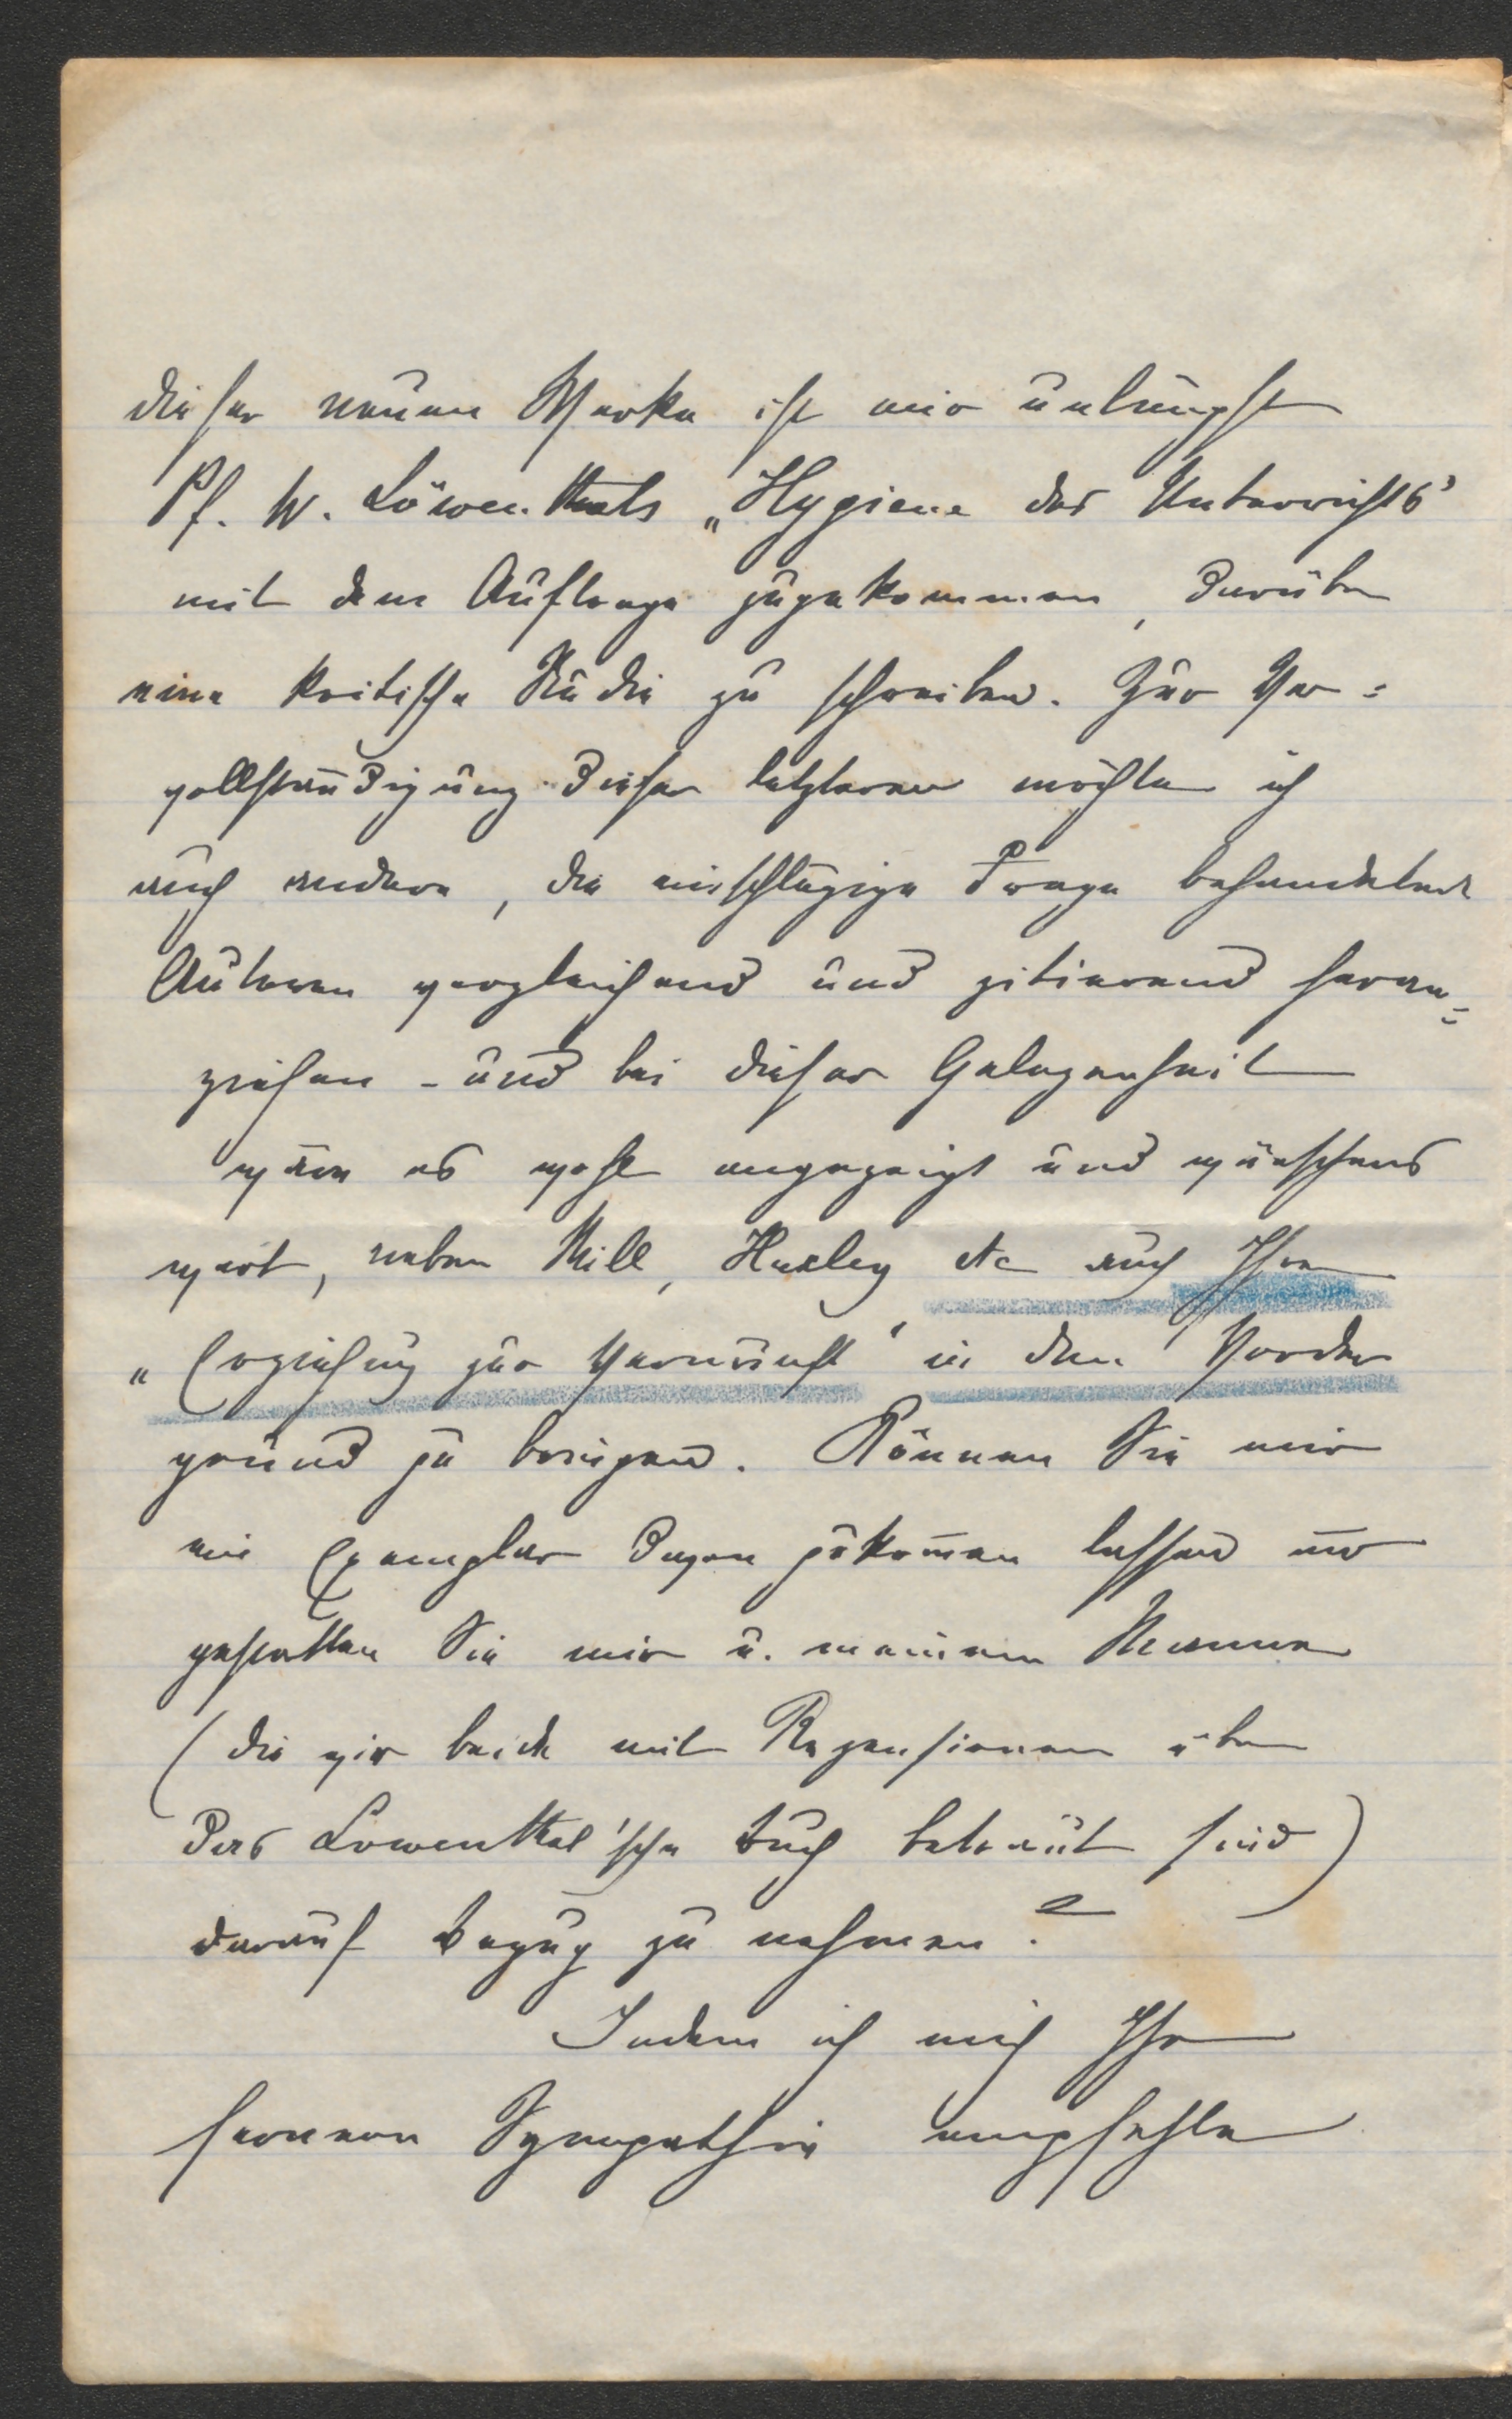 dieser neuen Werke ist mir unlängst
Pf. W. Löwenthals „Hygiene des Unterrichts"
mit dem Auftrage zugekommen, darüber
eine kritische Studie zu schreiben. Zur Ver=
vollständigung dieser letzteren möchte ich
auch andere, die einschlägige Frage behandelnde
Autoren vergleichend und zitierend heran=
ziehen – und bei dieser Gelegenheit
wäre es wohl angezeigt und wünschens
wert, neben Mill, Huxley etc auch Ihre
„Erziehung zur Vernunft" in den Vorder
grund zu bringen. Können Sie mir
ein Exemplar davon zukom̄en lassen und
gestatten Sie mir u. meinem Manne
(die wir beide mit Rezensionen über
das Löwenthal'sche Buch betraut sind)
darauf Bezug zu nehmen?
Indem ich mich Ihrer
ferneren Sympathie empfehle